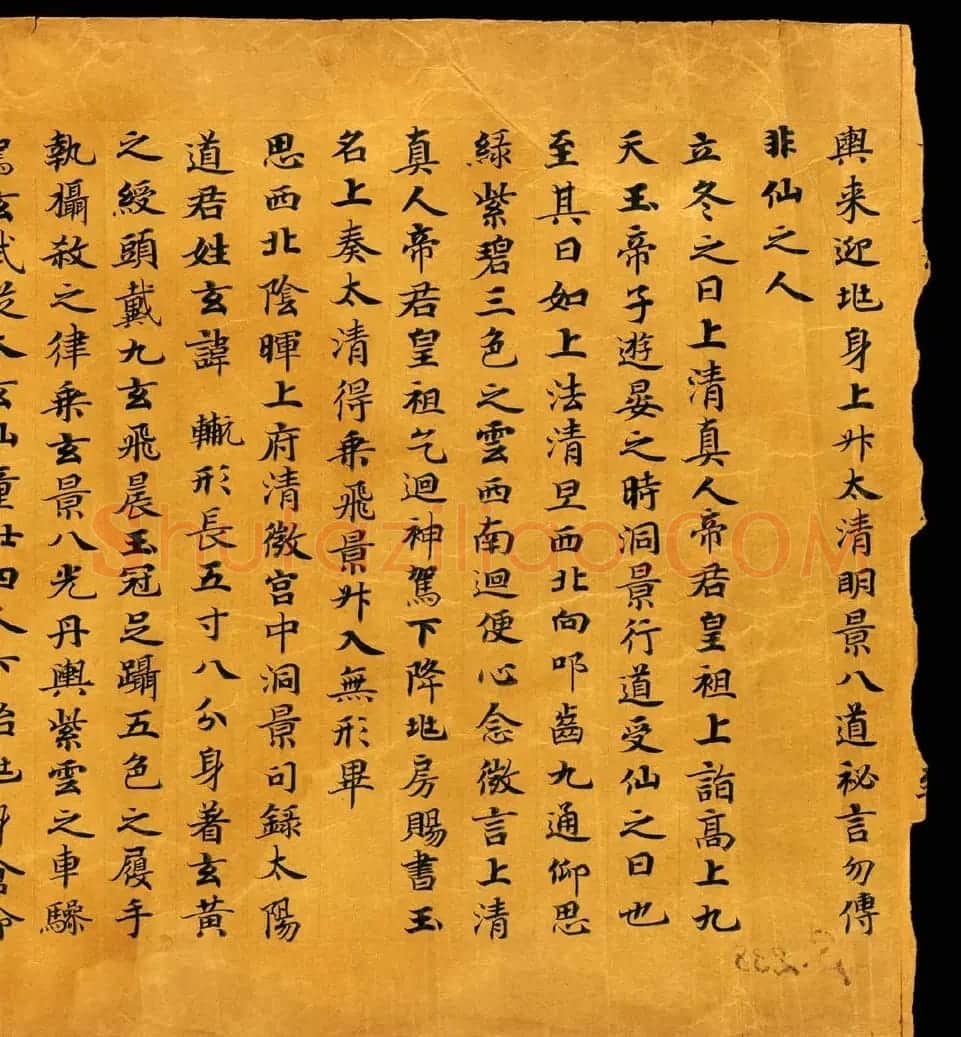 輿来迎兆身上升太清明景八道秘言勿傳
非仙之人
立冬之日上清真人帝君皇祖上詣高上九
天玉帝子遊晏之時洞景行道受仙之日也
至其日如上法清旦西北向叩齒九通仰思
緑紫碧三色之雲西南迴便心念微言上清
真人帝君皇祖乞迴神駕下降兆房賜書玉
名上奏太清得乗飛景升入無形畢
思西北陰暉上府清微宮中洞景司録太陽
道君姓玄諱 形長五寸八分身著玄黄
之綬頭戴九玄飛晨玉冠足躡五色之履手
執攝殺之律乗玄景八光丹輿紫雲之車驂
駕玄武從太玄仙童廿四人下治兆
Shufaziliao.COM